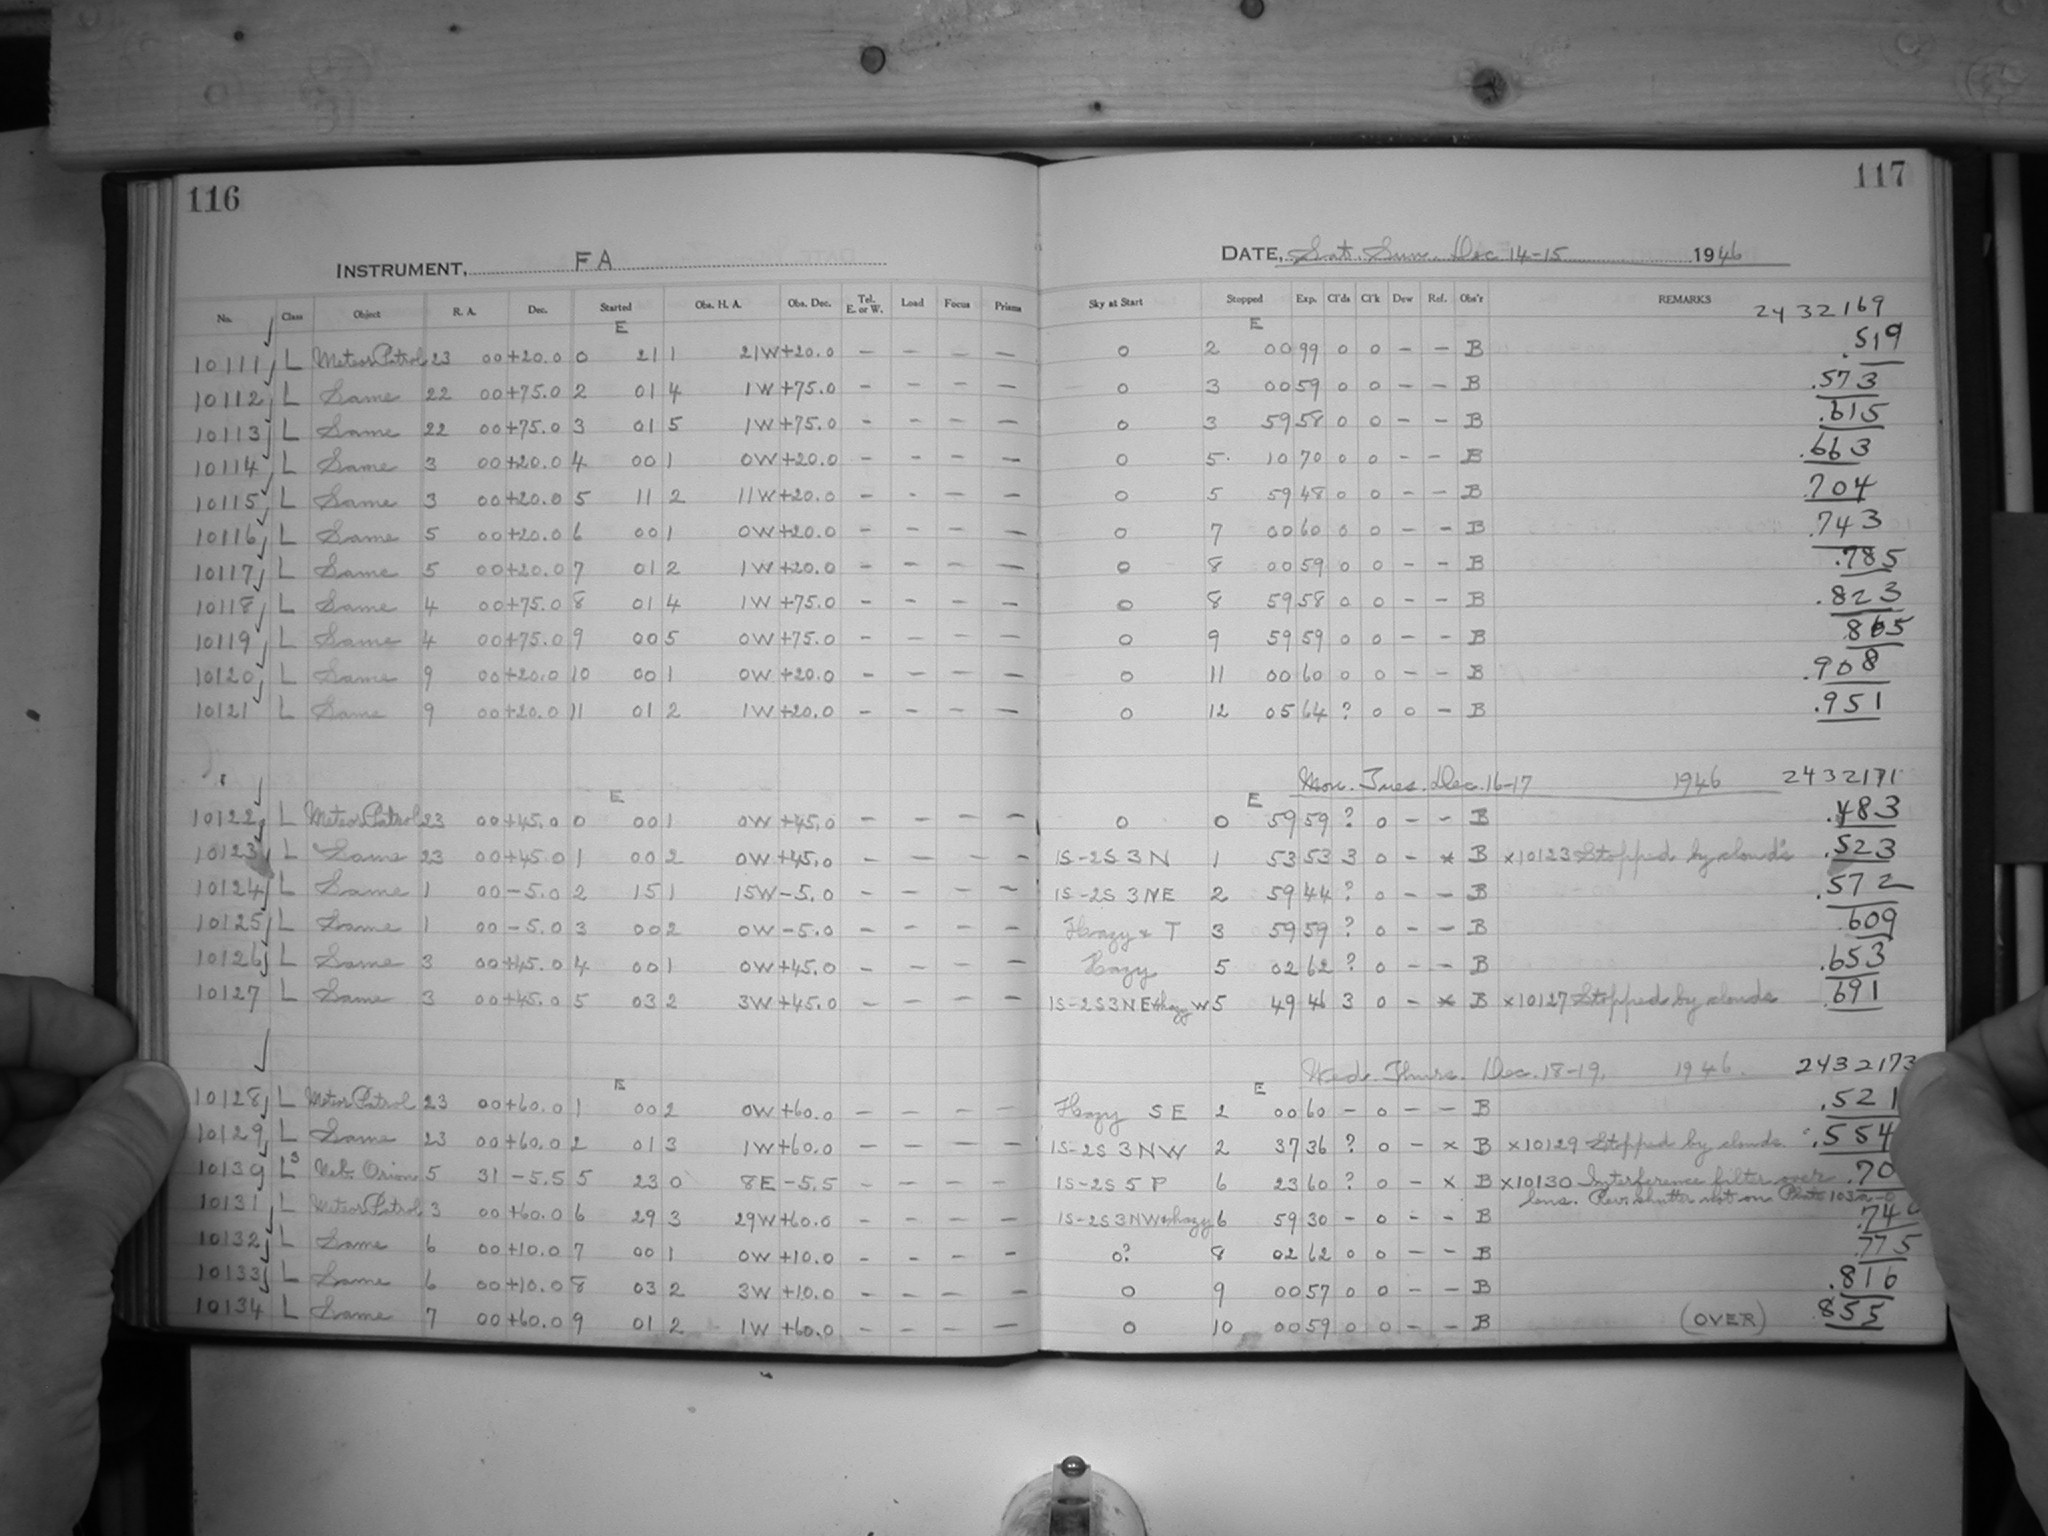 116
117
INSTRUMENT, FA
DATE, Sat. Sun. Dec 14-15 1946
No. Class Object R. A. Dec. Started Obs. H. A. Obs. Dec. Tel. E. or W. Load Focus Prisms Sky at Start Stopped Exp. Cl'ds Cl'k Dew Ref. Obs'r REMARKS
2432169
E E
10111 L Meteor Patrol 23 00 +20.0 0 21 1 21W +20.0 - - - - 0 2 00 99 0 0 - - B .519
10112 L Same 22 00 +75.0 2 01 4 1W +75.0 - - - - 0 3 00 59 0 0 - - B .573
10113 L Same 22 00 +75.0 3 01 5 1W +75.0 - - - - 0 3 59 58 0 0 - - B .615
10114 L Same 3 00 +20.0 4 00 1 0W +20.0 - - - - 0 5 10 70 0 0 - - B .663
10115 L Same 3 00 +20.0 5 11 2 11W +20.0 - - - - 0 5 59 48 0 0 - - B .704
10116 L Same 5 00 +20.0 6 00 1 0W +20.0 - - - - 0 7 00 60 0 0 - - B .743
10117 L Same 5 00 +20.0 7 01 2 1W +20.0 - - - - 0 8 00 59 0 0 - - B .785
10118 L Same 4 00 +75.0 8 01 4 1W +75.0 - - - - 0 8 59 58 0 0 - - B .823
10119 L Same 4 00 +75.0 9 00 5 0W +75.0 - - - - 0 9 59 59 0 0 - - B .865
10120 L Same 9 00 +20.0 10 00 1 0W +20.0 - - - - 0 11 00 60 0 0 - - B .908
10121 L Same 9 00 +20.0 11 01 2 1W +20.0 - - - - 0 12 05 64 ? 0 0 - B .951
Mon. Tues. Dec. 16-17 1946 2432171
E E
10122 L Meteor Patrol 23 00 +45.0 0 00 1 0W +45.0 - - - - 0 0 59 59 ? 0 - - B .483
10123 L Same 23 00 +45.0 1 00 2 0W +45.0 - - - - 1S-2S 3 N 1 53 53 3 0 - x B x10123 Stopped by clouds .523
10124 L Same 1 00 -5.0 2 15 1 15W -5.0 - - - - 1S-2S 3 NE 2 59 44 ? 0 - - B .572
10125 L Same 1 00 -5.0 3 00 2 0W -5.0 - - - - Hazy & T 3 59 59 ? 0 - - B .609
10126 L Same 3 00 +45.0 4 00 1 0W +45.0 - - - - Hazy 5 02 62 ? 0 - - B .653
10127 L Same 3 00 +45.0 5 03 2 3W +45.0 - - - - 1S-2S 3 NE & hazy W 5 49 46 3 0 - x B x10127 Stopped by clouds .691
Wed. Thurs. Dec. 18-19, 1946. 2432173
E E
10128 L Meteor Patrol 23 00 +60.0 1 00 2 0W +60.0 - - - - Hazy SE 2 00 60 - 0 - - B .521
10129 L Same 23 00 +60.0 2 01 3 1W +60.0 - - - - 1S-2S 3 NW 2 37 36 ? 0 - x B x10129 Stopped by clouds. .554
10130 LS Neb. Orion 5 31 -5.5 5 23 0 8E -5.5 - - - - 1S-2S 5 P 6 23 60 ? 0 - x B x10130 Interference filter over .70
lens. Rev. shutter not on Plate 103a-0
10131 L Meteor Patrol 3 00 +60.0 6 29 3 29W +60.0 - - - - 1S-2S 3 NW & hazy 6 59 30 - 0 - - B .74
10132 L Same 6 00 +10.0 7 00 1 0W +10.0 - - - - 0? 8 02 62 0 0 - - B .775
10133 L Same 6 00 +10.0 8 03 2 3W +10.0 - - - - 0 9 00 57 0 0 - - B .816
10134 L Same 7 00 +60.0 9 01 2 1W +60.0 - - - - 0 10 00 59 0 0 - - B (OVER) .855